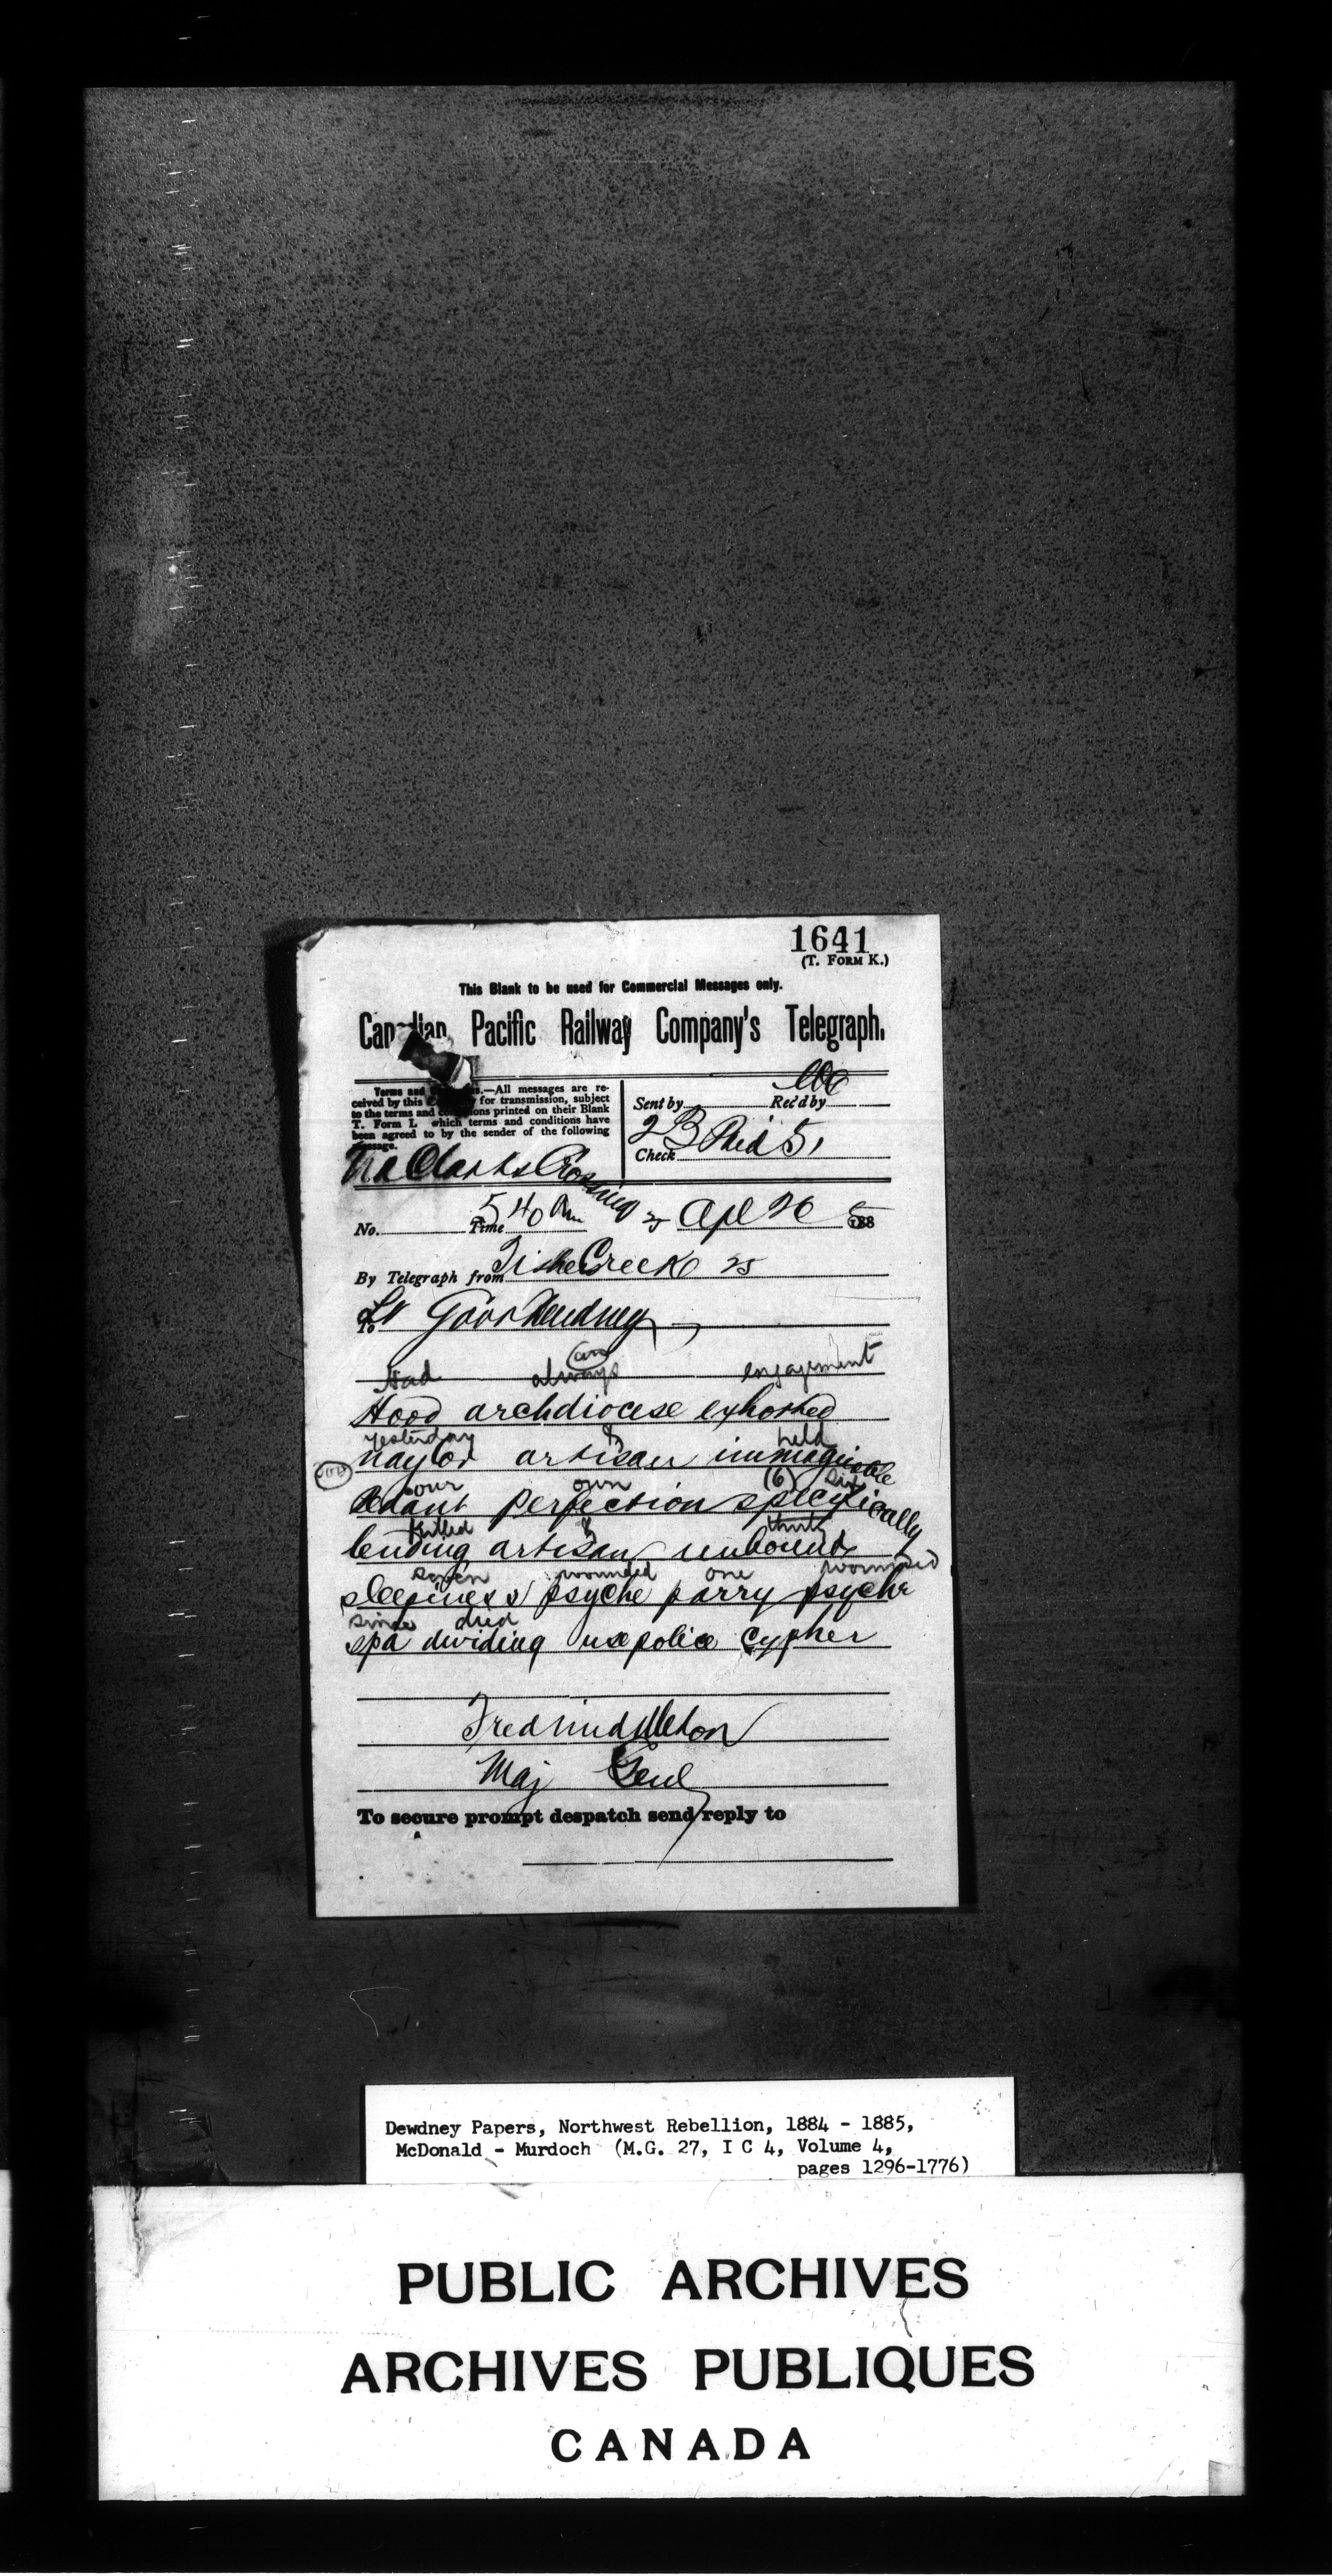 1641
(T. FORM K.)
This Blank to be used for Commercial Messages only.
Canadian Pacific Railway Company's Telegraph.
Terms and .—All messages are re-
ceived by this for transmission, subject
to the terms and conditions printed on their Blank
T. Form I, which terms and conditions have
been agreed to by the sender of the following
message.
Sent by Rec'd by
23 Paid 51
Check
Via Clarks Crossing 25
No. Time 5 40 Am Apl 26 1885
By Telegraph from Fish Creek 25
To Lt Govr Dewdney
Had always (an) engagement
Hood archdiocese exhorted
yesterday & held
naylor artisan
our own (6) six
perfection specifically
killed & thirty
lending artisan unbound
seven wounded one wounded
sleepiness psyche parry psyche
since died
spa dividing use police Cypher
Fred Middleton
Maj Genl
To secure prompt despatch send reply to
Dewdney Papers, Northwest Rebellion, 1884 - 1885,
McDonald - Murdoch (M.G. 27, I C 4, Volume 4,
pages 1296-1776)
PUBLIC ARCHIVES
ARCHIVES PUBLIQUES
CANADA